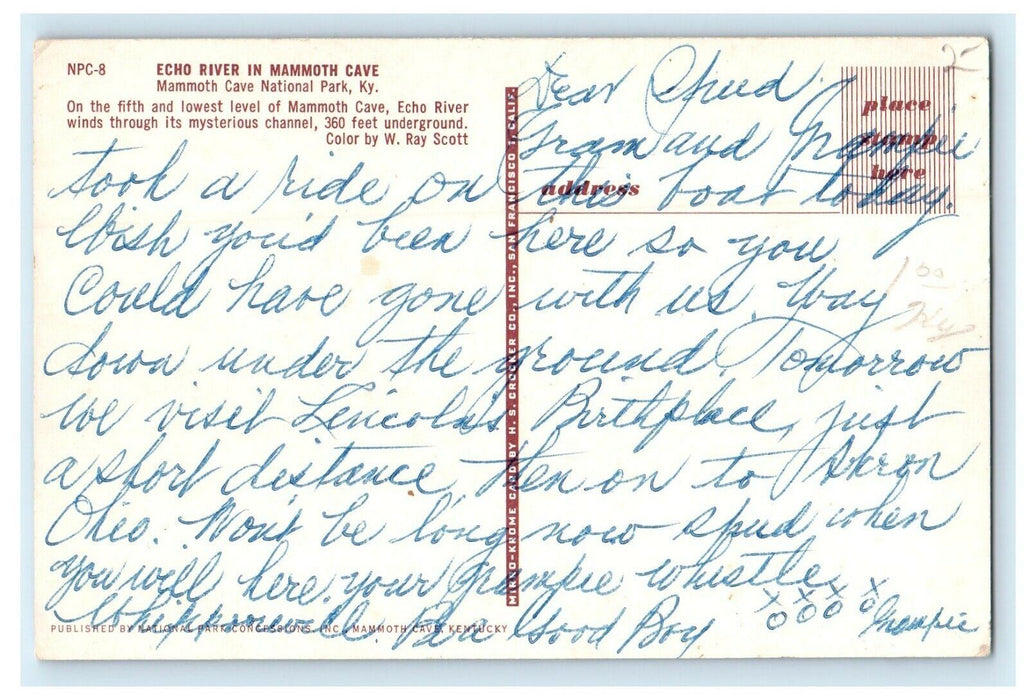 NPC-8 ECHO RIVER IN MAMMOTH CAVE
Mammoth Cave National Park, Ky.
On the fifth and lowest level of Mammoth Cave, Echo River
winds through its mysterious channel, 360 feet underground.
Color by W. Ray Scott
MIRRO-KROME CARD BY H. S. CROCKER CO., INC., SAN FRANCISCO 1, CALIF.
place
stamp
here
address
2-
1 00
Dear Spud
Gram and Grampie
took a ride on this boat today.
Wish you'd been here so you
Could have gone with us. Way
down under the ground. Tomorrow
we visit Lincoln's Birthplace, just
a short distance, then on to Akron
Ohio. Won't be long now spud when
you will here your Grampie whistle
Whippoorwill. Be a Good Boy
x x x x
o o o o Grampie
PUBLISHED BY NATIONAL PARK CONCESSIONS, INC., MAMMOTH CAVE, KENTUCKY